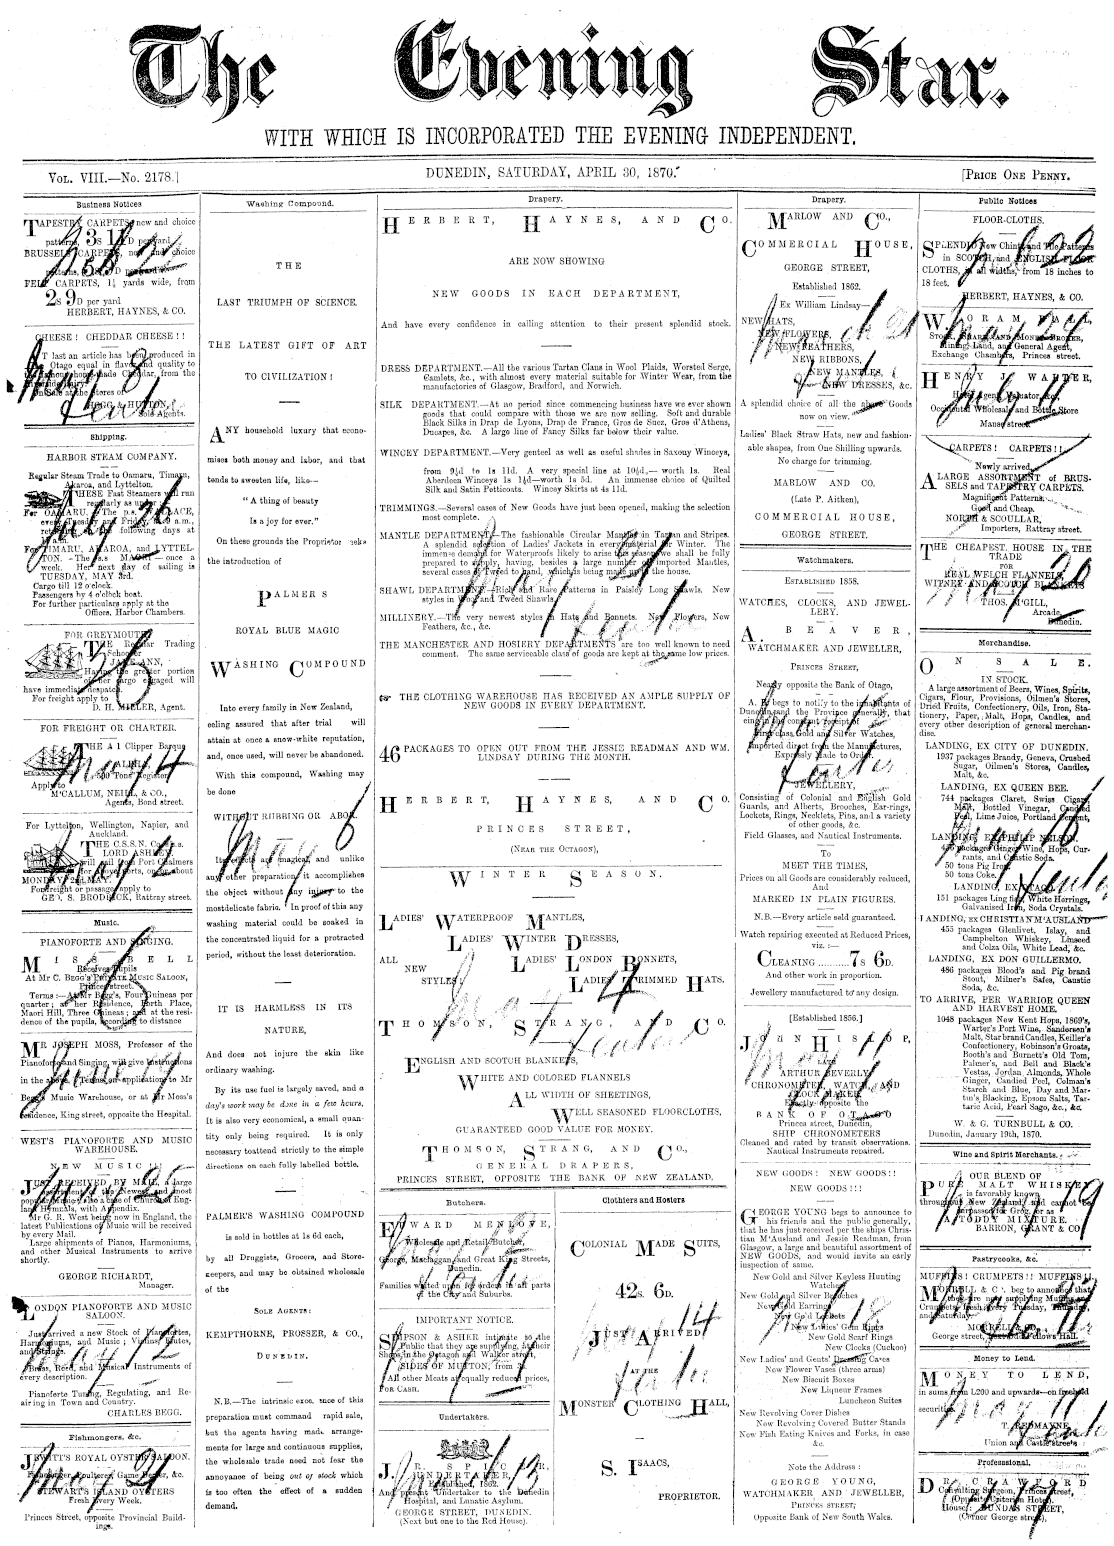 The Evening Star.
WITH WHICH IS INCORPORATED THE EVENING INDEPENDENT.
VOL. VIII.—No. 2178.]
DUNEDIN, SATURDAY, APRIL 30, 1870.
[PRICE ONE PENNY.
Business Notices
TAPESTRY CARPETS, new and choice
BRUSSELS CARPETS, new and choice
FELT CARPETS, 1¼ yards wide, from
2S 9D per yard
HERBERT, HAYNES, & CO.
CHEESE! CHEDDAR CHEESE!!
AT last an article has been produced in
Otago equal in flavor and quality to
Sole Agents.
Shipping.
HARBOR STEAM COMPANY.
Regular Steam Trade to Oamaru, Timaru,
Akaroa, and Lyttelton.
THESE Fast Steamers will run
regularly as under
July 26
TUESDAY, MAY 3rd.
Cargo till 12 o'clock.
Passengers by 4 o'clock boat.
For further particulars apply at the
Offices, Harbor Chambers.
FOR GREYMOUTH
THE Regular Trading
Schooner
JANE ANN,
Having the greater portion
of her cargo engaged will
have immediate despatch.
For freight apply to
D. H. MILLER, Agent.
FOR FREIGHT OR CHARTER.
THE A 1 Clipper Barque
500 Tons Register
Apply to
M'CALLUM, NEILL, & CO.,
Agents, Bond street.
For Lyttelton, Wellington, Napier, and
Auckland.
THE C.S.S.N. Co.'s s.s.
LORD ASHLEY
will sail from Port Chalmers
for above ports, on or about
MONDAY, 2nd MAY.
For freight or passage apply to
GEO. S. BRODRICK, Rattray street.
Music.
PIANOFORTE AND SINGING.
MISS BELL
Receives Pupils
At Mr C. BEGG'S PRIVATE MUSIC SALOON,
Princes street.
Terms:—At Mr Begg's, Four Guineas per
quarter; at her Residence, Forth Place,
Maori Hill, Three Guineas; and at the resi-
dence of the pupils, according to distance
MR JOSEPH MOSS, Professor of the
Pianoforte and Singing, will give instructions
in the above. Terms on application to Mr
Begg's Music Warehouse, or at Mr Moss's
residence, King street, opposite the Hospital.
WEST'S PIANOFORTE AND MUSIC
WAREHOUSE.
NEW MUSIC!!
JUST RECEIVED BY MAIL, a large
Mr G. R. West being now in England, the
latest Publications of Music will be received
by every Mail.
Large shipments of Pianos, Harmoniums,
and other Musical Instruments to arrive
shortly.
GEORGE RICHARDT,
Manager.
LONDON PIANOFORTE AND MUSIC
SALOON.
Just arrived a new Stock of Pianofortes,
Harmoniums, and Music; Violins, Flutes,
and Strings.
Brass, Reed, and Musical Instruments of
every description.
Pianoforte Tuning, Regulating, and Re-
pairing in Town and Country.
CHARLES BEGG.
Fishmongers, &c.
JEWITT'S ROYAL OYSTER SALOON.
Fishmonger, Poulterer, Game Dealer, &c.
STEWART'S ISLAND OYSTERS
Fresh Every Week.
Princes Street, opposite Provincial Build-
ings.
Washing Compound.
THE
LAST TRIUMPH OF SCIENCE.
THE LATEST GIFT OF ART
TO CIVILIZATION!
ANY household luxury that econo-
mises both money and labor, and that
tends to sweeten life, like—
"A thing of beauty
Is a joy for ever."
On these grounds the Proprietor seeks
the introduction of
PALMERS
ROYAL BLUE MAGIC
WASHING COMPOUND
Into every family in New Zealand,
feeling assured that after trial will
attain at once a snow-white reputation,
and, once used, will never be abandoned.
With this compound, Washing may
be done
WITHOUT RUBBING OR LABOR.
May 6
Its effects are magical, and unlike
any other preparation, it accomplishes
the object without any injury to the
most delicate fabric. In proof of this any
washing material could be soaked in
the concentrated liquid for a protracted
period, without the least deterioration.
IT IS HARMLESS IN ITS
NATURE,
And does not injure the skin like
ordinary washing.
By its use fuel is largely saved, and a
day's work may be done in a few hours.
It is also very economical, a small quan-
tity only being required. It is only
necessary to attend strictly to the simple
directions on each fully labelled bottle.
PALMER'S WASHING COMPOUND
is sold in bottles at 1s 6d each,
by all Druggists, Grocers, and Store-
keepers, and may be obtained wholesale
of the
SOLE AGENTS:
KEMPTHORNE, PROSSER, & CO.,
DUNEDIN.
N.B.—The intrinsic excellence of this
preparation must command rapid sale,
but the agents having made arrange-
ments for large and continuous supplies,
the wholesale trade need not fear the
annoyance of being out of stock which
is too often the effect of a sudden
demand.
Drapery.
HERBERT, HAYNES, AND CO.
ARE NOW SHOWING
NEW GOODS IN EACH DEPARTMENT,
And have every confidence in calling attention to their present splendid stock.
DRESS DEPARTMENT.—All the various Tartan Claus in Wool Plaids, Worsted Serge,
Camlets, &c., with almost every material suitable for Winter Wear, from the
manufactories of Glasgow, Bradford, and Norwich.
SILK DEPARTMENT.—At no period since commencing business have we ever shown
goods that could compare with those we are now selling. Soft and durable
Black Silks in Drap de Lyons, Drap de France, Gros de Suez, Gros d'Athens,
Ducapes, &c. A large line of Fancy Silks far below their value.
WINCEY DEPARTMENT.—Very genteel as well as useful shades in Saxony Winceys,
from 9½d to 1s 11d. A very special line at 10½d,— worth 1s. Real
Aberdeen Winceys 1s 1½d—worth 1s 5d. An immense choice of Quilted
Silk and Satin Petticoats. Wincey Skirts at 4s 11d.
TRIMMINGS.—Several cases of New Goods have just been opened, making the selection
most complete.
MANTLE DEPARTMENT.—The fashionable Circular Mantles in Tartan and Stripes.
A splendid selection of Ladies' Jackets in every material for Winter. The
immense demand for Waterproofs likely to arise this season we shall be fully
prepared to supply, having, besides a large number of imported Mantles,
several cases of Tweed to hand, which is being made up in the house.
SHAWL DEPARTMENT.—Rich and Rare Patterns in Paisley Long Shawls. New
styles in Wool and Tweed Shawls.
MILLINERY.—The very newest styles in Hats and Bonnets. New Flowers, New
Feathers, &c., &c.
THE MANCHESTER AND HOSIERY DEPARTMENTS are too well known to need
comment. The same serviceable class of goods are kept at the same low prices.
THE CLOTHING WAREHOUSE HAS RECEIVED AN AMPLE SUPPLY OF
NEW GOODS IN EVERY DEPARTMENT.
46 PACKAGES TO OPEN OUT FROM THE JESSIE READMAN AND WM.
LINDSAY DURING THE MONTH.
HERBERT, HAYNES, AND CO.
PRINCES STREET,
(NEAR THE OCTAGON),
WINTER SEASON.
LADIES' WATERPROOF MANTLES,
LADIES' WINTER DRESSES,
ALL NEW STYLES
LADIES' LONDON BONNETS,
LADIES' TRIMMED HATS.
THOMSON, STRANG, AND CO.
ENGLISH AND SCOTCH BLANKETS,
WHITE AND COLORED FLANNELS
ALL WIDTH OF SHEETINGS,
WELL SEASONED FLOORCLOTHS,
GUARANTEED GOOD VALUE FOR MONEY.
THOMSON, STRANG, AND CO.,
GENERAL DRAPERS,
PRINCES STREET, OPPOSITE THE BANK OF NEW ZEALAND,
Butchers.
EDWARD MENLOVE,
Wholesale and Retail Butcher,
George, Maclaggan, and Great King Streets,
Dunedin.
Families waited upon for orders in all parts
of the City and Suburbs.
IMPORTANT NOTICE.
SIMPSON & ASHER intimate to the
Public that they are supplying, at their
Shops in the Octagon and Walker street,
SIDES OF MUTTON, from
All other Meats at equally reduced prices,
FOR CASH.
Undertakers.
J. R. SPICER,
UNDERTAKER,
Established, 1862.
And present Undertaker to the Dunedin
Hospital, and Lunatic Asylum.
GEORGE STREET, DUNEDIN.
(Next but one to the Red House).
Clothiers and Hosiers
COLONIAL MADE SUITS,
42S. 6D.
JUST ARRIVED
AT THE
MONSTER CLOTHING HALL,
S. ISAACS,
PROPRIETOR.
Drapery.
MARLOW AND CO.,
COMMERCIAL HOUSE,
GEORGE STREET,
Established 1862.
Ex William Lindsay—
NEW HATS,
NEW FLOWERS,
NEW FEATHERS,
NEW RIBBONS,
NEW MANTLES,
NEW DRESSES, &c.
A splendid choice of all the above Goods
now on view.
Ladies' Black Straw Hats, new and fashion-
able shapes, from One Shilling upwards.
No charge for trimming.
MARLOW AND CO.
(Late P. Aitken),
COMMERCIAL HOUSE,
GEORGE STREET.
Watchmakers.
ESTABLISHED 1858.
WATCHES, CLOCKS, AND JEWEL-
LERY.
A. BEAVER,
WATCHMAKER AND JEWELLER,
PRINCES STREET,
Nearly opposite the Bank of Otago,
A. B. begs to notify to the inhabitants of
Dunedin and the Province generally, that
First-class Gold and Silver Watches,
Imported direct from the Manufacturers,
Expressly Made to Order.
JEWELLERY,
Consisting of Colonial and English Gold
Guards, and Alberts, Brooches, Ear-rings,
Lockets, Rings, Necklets, Pins, and a variety
of other goods, &c.
Field Glasses, and Nautical Instruments.
To
MEET THE TIMES,
Prices on all Goods are considerably reduced,
And
MARKED IN PLAIN FIGURES.
N.B.—Every article sold guaranteed.
Watch repairing executed at Reduced Prices,
viz.:—
CLEANING..........7S 6D.
And other work in proportion.
Jewellery manufactured to any design.
[Established 1856.]
JOHN HISLOP,
LATE
ARTHUR BEVERLY
CHRONOMETER, WATCH, AND
CLOCK MAKER,
Exactly opposite the
BANK OF OTAGO
Princes street, Dunedin,
SHIP CHRONOMETERS
Cleaned and rated by transit observations.
Nautical Instruments repaired.
NEW GOODS! NEW GOODS!!
NEW GOODS!!!
GEORGE YOUNG begs to announce to
his friends and the public generally,
that he has just received per the ships Chris-
tian M'Ausland and Jessie Readman, from
Glasgow, a large and beautiful assortment of
NEW GOODS, and would invite an early
inspection of same.
New Gold and Silver Keyless Hunting
Watches
New Gold and Silver Brooches
New Gold Earrings
New Gold Lockets
New Ladies' Gem Rings
New Gold Scarf Rings
New Clocks (Cuckoo)
New Ladies' and Gents' Dressing Cases
New Flower Vases (three arms)
New Biscuit Boxes
New Liqueur Frames
Luncheon Suites
New Revolving Cover Dishes
New Revolving Covered Butter Stands
New Fish Eating Knives and Forks, in case
&c.
Note the Address:
GEORGE YOUNG,
WATCHMAKER AND JEWELLER,
PRINCES STREET;
Opposite Bank of New South Wales.
Public Notices
FLOOR-CLOTHS.
SPLENDID New Chintz and Tile Patterns
in SCOTCH and ENGLISH FLOOR
CLOTHS, in all widths, from 18 inches to
18 feet.
HERBERT, HAYNES, & CO.
W. ORAM BALL,
Stock, Share, and Money Broker,
Mining, Land, and General Agent,
Exchange Chambers, Princes street.
HENRY J. WALTER,
Hotel Agent, Valuator, &c.,
Occidental Wholesale and Bottle Store
Manse street.
CARPETS! CARPETS!!
Newly arrived,
A LARGE ASSORTMENT of BRUS-
SELS and TAPESTRY CARPETS.
Magnificent Patterns.
Good and Cheap.
NORTH & SCOULLAR,
Importers, Rattray street.
THE CHEAPEST HOUSE IN THE
TRADE
FOR
REAL WELCH FLANNELS,
WITNEY AND SCOTCH BLANKETS
THOS. M'GILL,
Arcade,
Dunedin.
Merchandise.
ON SALE.
IN STOCK.
A large assortment of Beers, Wines, Spirits,
Cigars, Flour, Provisions, Oilmen's Stores,
Dried Fruits, Confectionery, Oils, Iron, Sta-
tionery, Paper, Malt, Hops, Candles, and
every other description of general merchan-
dise.
LANDING, EX CITY OF DUNEDIN.
1937 packages Brandy, Geneva, Crushed
Sugar, Oilmen's Stores, Candles,
Malt, &c.
LANDING, EX QUEEN BEE.
744 packages Claret, Swiss Cigars,
Malt, Bottled Vinegar, Candles,
Peel, Lime Juice, Portland Cement,
&c.
LANDING, EX PHILIP NELSON.
436 packages Ginger Wine, Hops, Cur-
rants, and Caustic Soda.
50 tons Pig Iron
50 tons Coke.
LANDING, EX OTAGO.
151 packages Ling fish, White Herrings,
Galvanised Iron, Soda Crystals.
LANDING, EX CHRISTIAN M'AUSLAND
455 packages Glenlivet, Islay, and
Campbelton Whiskey, Linseed
and Colza Oils, White Lead, &c.
LANDING, EX DON GUILLERMO.
486 packages Blood's and Pig brand
Stout, Milner's Safes, Caustic
Soda, &c.
TO ARRIVE, PER WARRIOR QUEEN
AND HARVEST HOME.
1048 packages New Kent Hops, 1869's,
Warter's Port Wine, Sandersen's
Malt, Star brand Candles, Keiller's
Confectionery, Robinson's Groats,
Booth's and Burnett's Old Tom,
Palmer's, and Bell and Black's
Vestas, Jordan Almonds, Whole
Ginger, Candied Peel, Colman's
Starch and Blue, Day and Mar-
tin's Blacking, Epsom Salts, Tar-
taric Acid, Pearl Sago, &c., &c.
W. & G. TURNBULL & CO.
Dunedin, January 19th, 1870.
Wine and Spirit Merchants.
OUR BLEND OF
PURE MALT WHISKEY
is favorably known
throughout New Zealand, and cannot be
surpassed for Grog, or as
A TODDY MIXTURE.
BARRON, GRANT & CO.
Pastrycooks, &c.
MUFFINS! CRUMPETS!! MUFFINS!!
MORRELL & CO. beg to announce that
they are now supplying Muffins and
Crumpets fresh every Tuesday, Thursday,
and Saturday.
MORRELL & CO.
George street, next Odd Fellows' Hall.
Money to Lend.
MONEY TO LEND,
in sums from L200 and upwards—on freehold
securities.
T. REDMAYNE,
Union and Castle streets
Professional.
DR. CRAWFORD
Consulting Surgeon, Princes street,
(Opposite Criterion Hotel).
House: DUNDAS STREET,
(Corner George street).